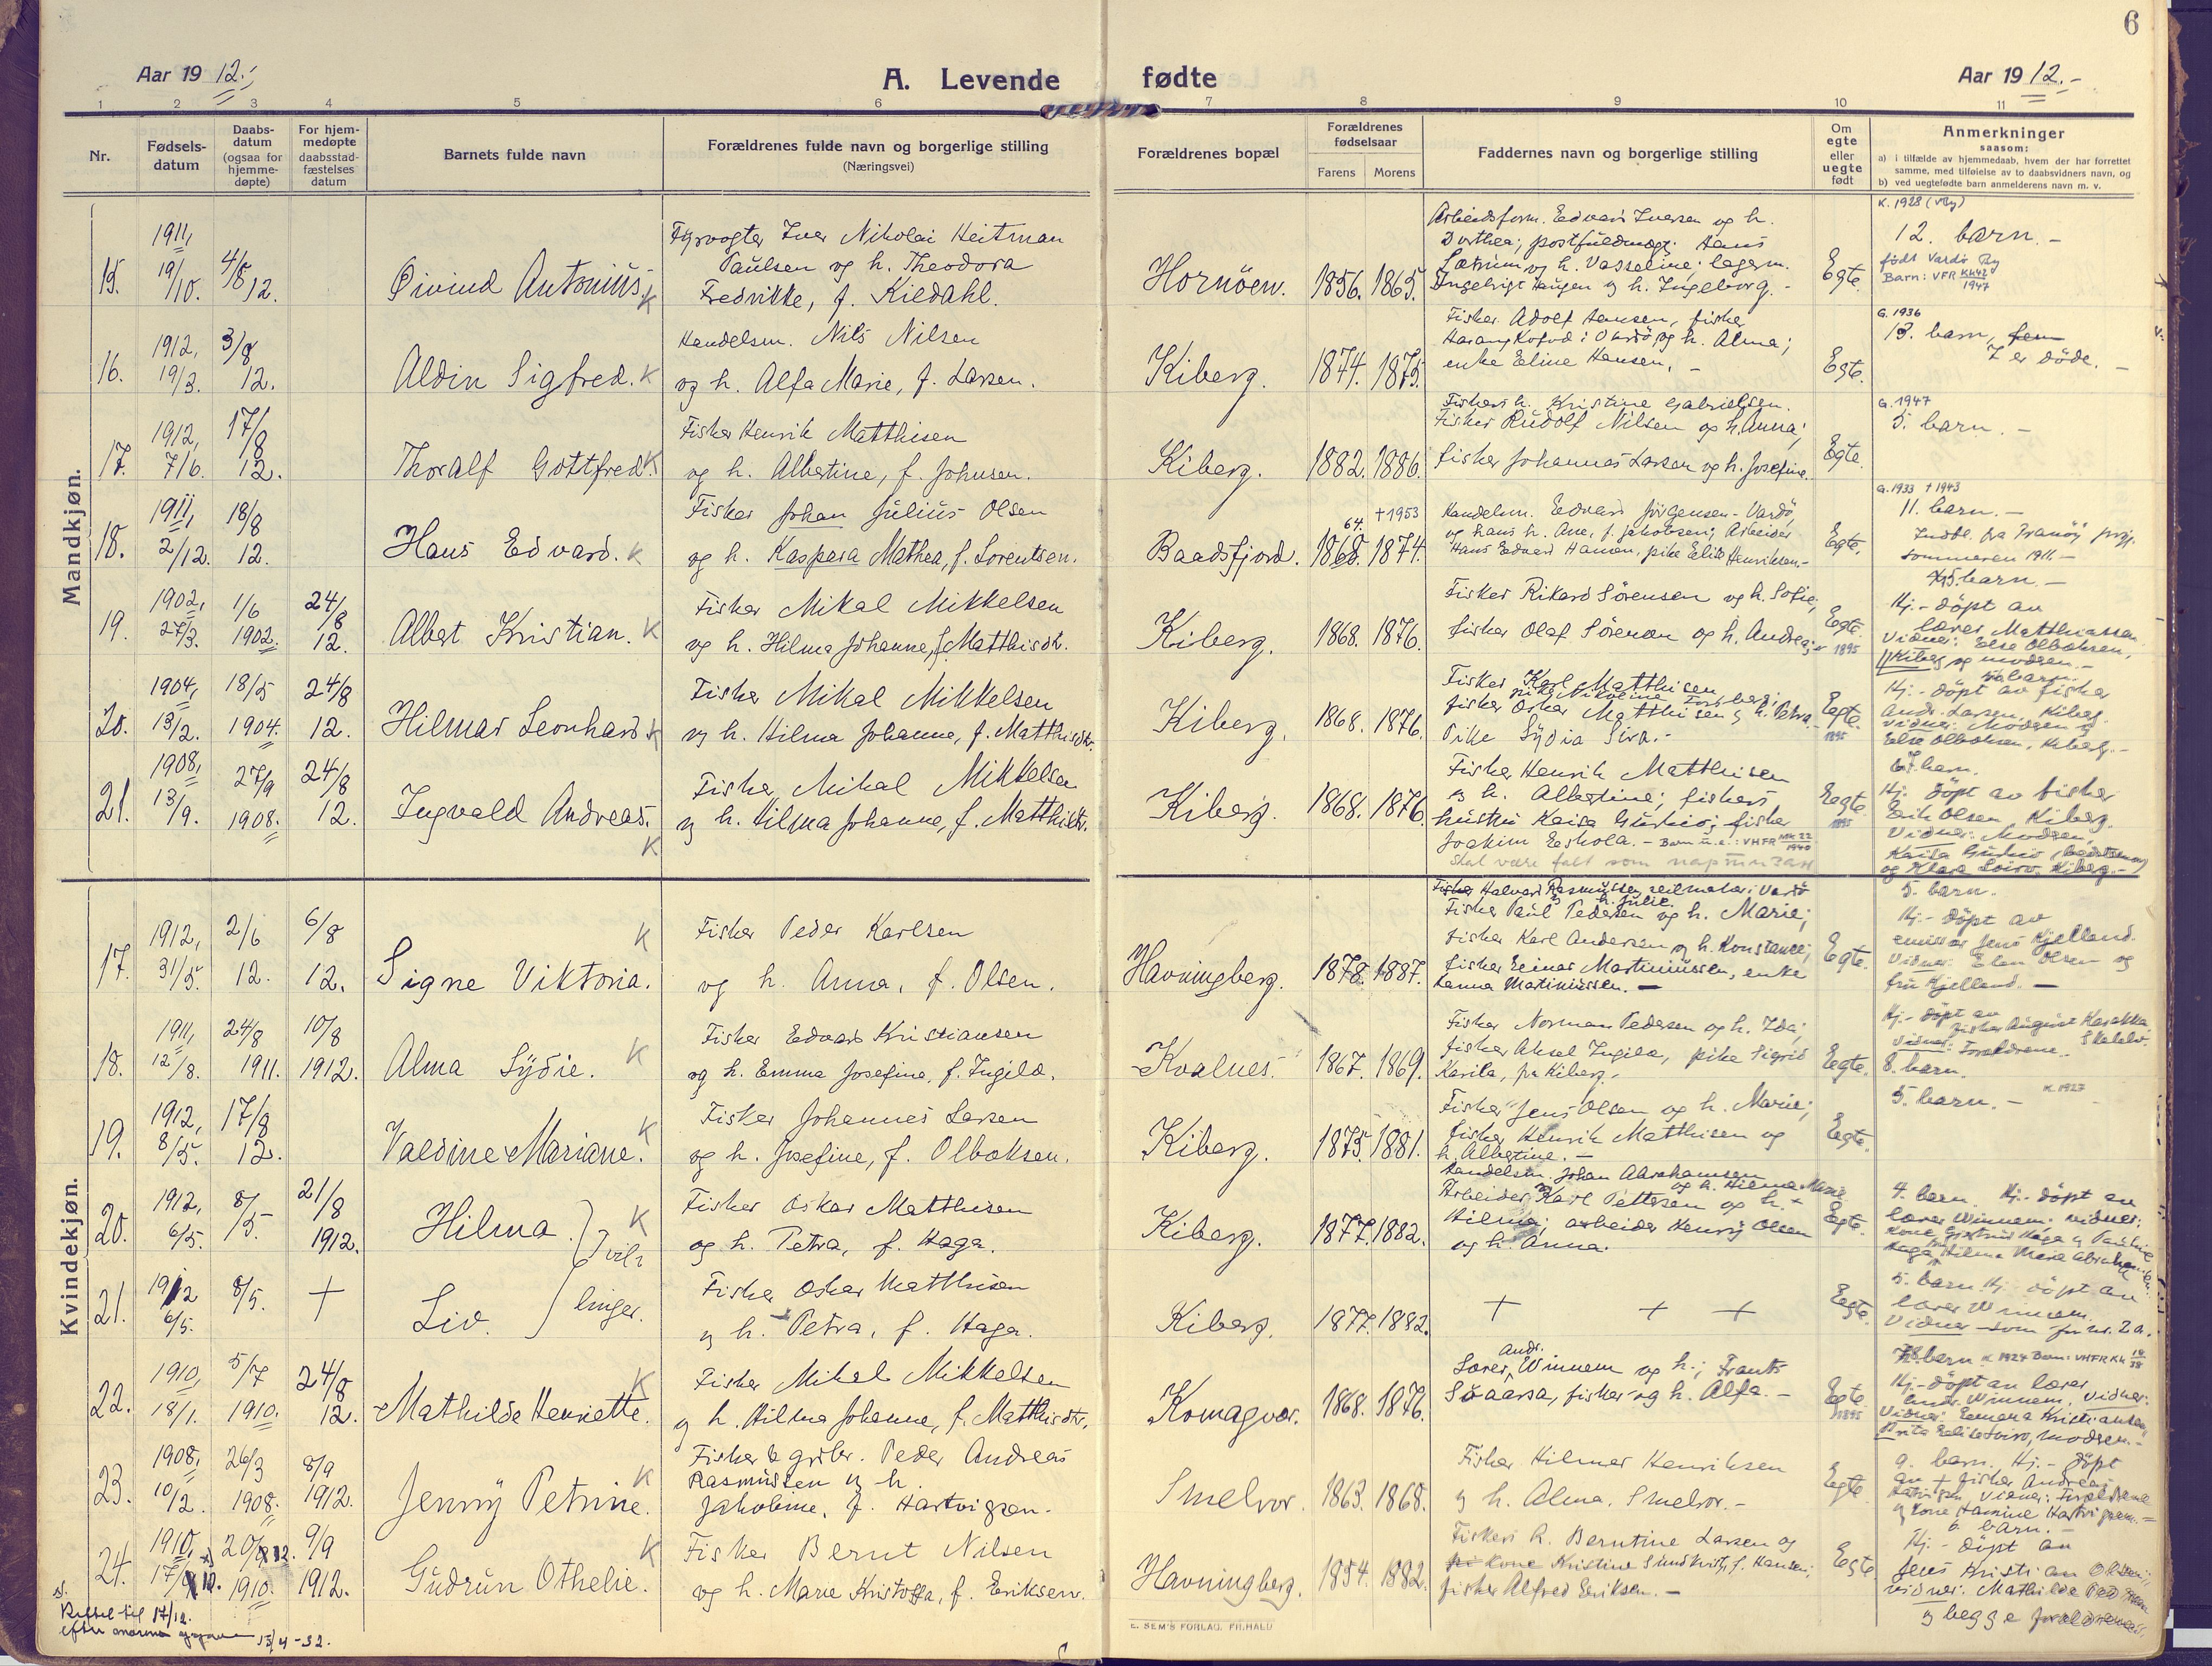 6
Aar 19 12.-
A. Levende fødte
Aar 19 12.-
1 2 3 4 5 6 7 8 9 10 11
Nr.
Fødsels-
datum
Daabs-
datum
(ogsaa for
hjemme-
døpte)
For hjem-
medøpte
daabsstad-
fæstelses
datum
Barnets fulde navn
Forældrenes fulde navn og borgerlige stilling
(Næringsvei)
Forældrenes bopæl
Forældrenes
fødselsaar
Farens Morens
Faddernes navn og borgerlige stilling
Om
egte
eller
uegte
født
Anmerkninger
saasom:
a) i tilfælde av hjemmedaab, hvem der har forrettet
samme, med tilføielse av to daabsvidners navn, og
b) ved uegtefødte barn anmelderens navn m. v.
Mandkjøn.
15. 1911, 19/10. 4/8 12. Øivind Antonius. K
Fyrvogter Iver Nikolai Heitman
Paulsen og h. Theodora
Fredrikke, f. Kieldahl.
Hornöen. 1856. 1865.
Arbeidsform. Edvard Iversen og h.
Dorthea; postfuldmægt. Hans
Sætrum og h. Vasseline; lagerm.
Ingebrigt Haugen og h. Ingeborg.-
Egte.
K. 1928 (VBy)
12. barn.-
født Vardö By
Barn: VFR Kk42
1947
16. 1912, 19/3. 3/8 12. Aldin Sigfred. K
Handelsm. Nils Nilsen
og h. Alfa Marie, f. Larsen.
Kiberg. 1874. 1875.
Fisker Adolf Hansen, fisker
Harang Kofod i Vardö og h. Alma;
enke Eline Hansen. -
Egte.
G. 1936
13. barn, fem
7 er döde. -
17. 1912, 7/6. 17/8 12. Thoralf Gottfred. K
Fisker Henrik Matthisen
og h. Albertine, f. Johnsen.
Kiberg. 1882. 1886.
Fiskers h. Kristine Gabrielsen.
Fisker Rudolf Nilsen og h. Anna;
fisker Johannes Larsen og h. Josefine.
Egte.
G. 1947
5. barn. -
18. 1911, 2/12. 18/8 12. Hans Edvard. K
Fisker Johan Julius Olsen
og h. Kaspara Mathea, f. Lorentsen.
Baadsfjord. 64. 1868. † 1953 1874.
Handelsm. Edvard Jörgensen - Vardö,
og hans h. Ane, f. Jakobsen; Arbeider
Hans Edvard Hansen, pike Elise Henriksen.-
Egte.
G. 1933 † 1943
11. barn. -
Indbl. fra Tranöy prgj.
sommeren 1911. -
19. 1902, 27/3. 1/6 1902. 24/8 12. Albert Kristian. K
Fisker Mikal Mikkelsen
og h. Hilma Johanne, f. Matthisdtr.
Kiberg. 1868. 1876.
Fisker Rikard Sörensen og h. Sofie;
fisker Olaf Sörensen og h. Andrea;
Egte.
1895
5. barn. -
Hj.- döpt av
lærer Matthiassen
Vidner: Else Olboksen,
Kiberg og modren. -
20. 1904, 13/2. 18/5 1904. 24/8 12. Hilmar Leonhard. K
Fisker Mikal Mikkelsen
og h. Hilma Johanne, f. Matthisdtr.
Kiberg. 1868. 1876.
Fisker Karl Matthisen
fisker Oskar Matthisen og h. Petra.
Pike Lydia Siva.-
Egte.
1895
barn.
Hj.- döpt av fisker
Andr. Larsen, Kiberg.
Vidner: Modren og
Else Olboksen, Kiberg.-
21. 1908, 13/9. 27/9 1908. 24/8 12. Ingvald Andreas. K
Fisker Mikal Mikkelsen
og h. Hilma Johanne, f. Matthisdtr.
Kiberg. 1868. 1876.
Fisker Henrik Matthisen
og h. Albertine; fiskers
hustru Kaisa Gurkio; fisker
Joakim Eskola. - Barn u.e.: VHFR Mk 22
1940
skal være falt som
Egte
1895
barn.
Hj. döpt av fisker
Erik Olsen, Kiberg.
Vidner: Modren,
Kaisa Gurkio,
og Klara Soivo, Kiberg.-
Kvindekjøn.
17. 1912, 31/5. 2/6 12. 6/8 12. Signe Viktoria. K
Fisker Peder Karlsen
og h. Anna, f. Olsen.
Havningberg. 1878. 1887.
Fisker Halvard Rasmussen, seilmaker i Vardö
og h. Julie.
Fisker Paul Pedersen og h. Marie;
fisker Karl Andersen og h. Konstance;
fisker Einar Martinussen, enke
Hanna Martinussen. -
Egte.
5. barn.
Hj.- döpt av
emissær Jens Kjelland.
Vidner: Elen Olsen og
fru Kjelland. -
18. 1911, 12/8. 24/8 1911. 10/8 1912. Alma Lydie. K
Fisker Edvard Kristiansen
og h. Emma Josefine, f. Ingilæ.
Kvalnes. 1867. 1869.
Fisker Norman Pedersen og h. Ida;
fisker Aksel Ingilæ, pike Sigrid
Karila, fra Kiberg.-
Egte.
Hj.- döpt av
fisker August Karakka,
Vidner: Forældrene.
8. barn.
19. 1912, 8/5. 17/8 12. Valdine Mariane. K
Fisker Johannes Larsen
og h. Josefine, f. Olboksen.
Kiberg. 1875. 1881.
Fisker Jens Olsen og h. Marie;
fisker Henrik Matthisen og
h. Albertine. -
Egte.
5. barn. - K. 1927
20. 1912, 6/5. 8/5. 21/8 1912. Hilma. Tvil- K
Fisker Oskar Matthisen
og h. Petra, f. Haga.
Kiberg. 1877. 1882.
Handelsm. Johan Abrahamsen
og h. Hilma Marie
Arbeider Karl Pettersen og h.
Hilma; arbeider Henrij Olsen
og h. Anna.
Egte.
4. barn. Hj.- döpt av
lærer Winnem; vidner:
Kone Gjertrud Haga og Pauline
Haga
21. 1912 6/5. 8/5. + Liv. linger.
Fisker Oskar Matthisen
og h. Petra, f. Haga.
Kiberg. 1877. 1882.
+ + +
Egte.
5. barn Hj.- döpt av
lærer Winnem.
Vidner som for nr. 20.
22. 1910, 18/1. 5/7 1910. 24/8 12. Mathilde Henriette. K
Fisker Mikal Mikkelsen
og h. Hilma Johanne, f. Matthisdtr.
Komagvær. 1868. 1876.
Lærer Andr. Winnem og h.; Frants
Soaarsa, fisker og h. Alfa. -
Egte
1895
barn K 1924 Barn: VHFR Kk
Hj.- döpt av lærer
Andr. Winnem. Vidner:
Vidner: Emera Kristiansen,
Brita Elise Soivo, modren.-
23. 1908, 10/2. 26/3 1908. 8/9 1912. Jenny Petrine. K
Fisker & grbr. Peder Andreas
Rasmussen og h.
Jakobine, f. Hartvigsen.
Smelror. 1863. 1868.
Fisker Hilmer Henriksen
og h. Alma, Smelror. -
Egte
9. barn. Hj.- döpt
av + fisker Andreas
Hartvigsen Vidner: Forældrene
og kone Hansine Hartvigsen.
24. 1910, 17/12. 20/12. 1910. 9/9 1912. Gudrun Othelie. K
Fisker Bernt Nilsen
og h. Marie Kristoffa, f. Eriksen.
Havningberg. 1854. 1882.
Fiskers h. Berntine Larsen og
kone Kristine Sundkvist, f. Hansen;
fisker Alfred Eriksen. -
Egte
6. barn. -
Hj.- döpt av
Jens Kristian Olsen;
vidner: Mathilde Pedersen
og begge forældrene.
Rettet til 17/12.
efter 15/4-32.
E. SEM'S FORLAG, FR.HALD